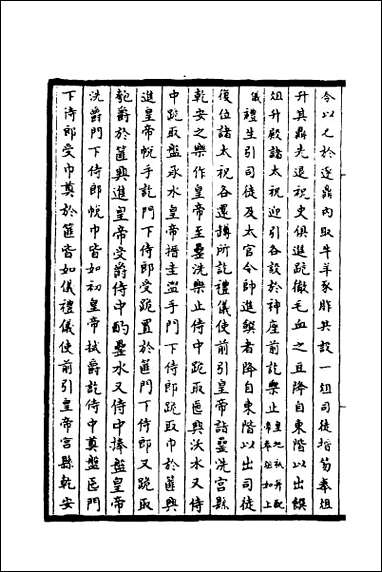 令以匕於逐鼎內取牛羊豕胙共設一俎司徒搢笏奉俎
升其鼎先退祝史俱進跪徹毛血之豆降自東階以出饌
俎升殿諸太祝迎引各設於神座前訖樂止皇地祇并配帝奉俎如上
儀禮生引司徒及太官令帥進饌者降自東階以出司徒
復位諸太祝各還罇所訖禮儀使前引皇帝詣罍洗宮縣
乾安之樂作皇帝至罍洗樂止侍中跪取匜興沃水又侍
中跪取盤承水皇帝搢圭盥手門下侍郎跪取巾於篚興
進皇帝帨手訖門下侍郎受跪置於篚門下侍郎又跪取
匏爵於篚興進皇帝受爵侍中酌罍水又侍中捧盤皇帝
洗爵門下侍郎帨巾皆如初皇帝拭爵訖侍中奠盤匜門
下侍郎受巾奠於篚皆如儀禮儀使前引皇帝宮縣乾安